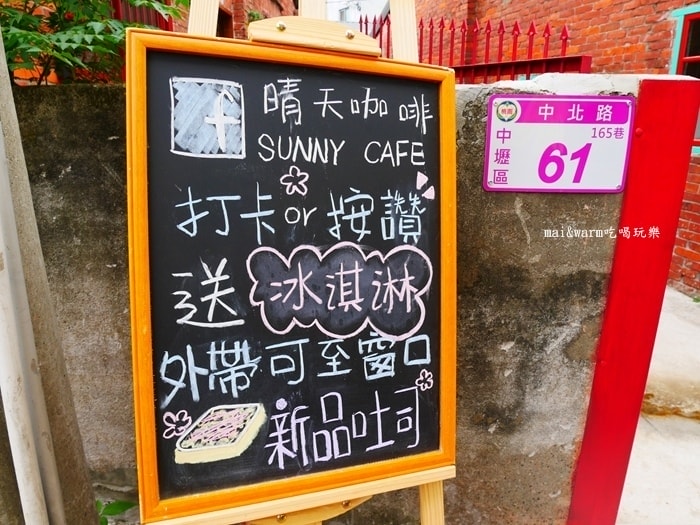 f 晴天咖啡
SUNNY CAFE
打卡or按讚
送 冰淇淋
外帶可至窗口
新品吐司
桃園 中北路
165巷
中壢區
61
mai&warm吃喝玩樂